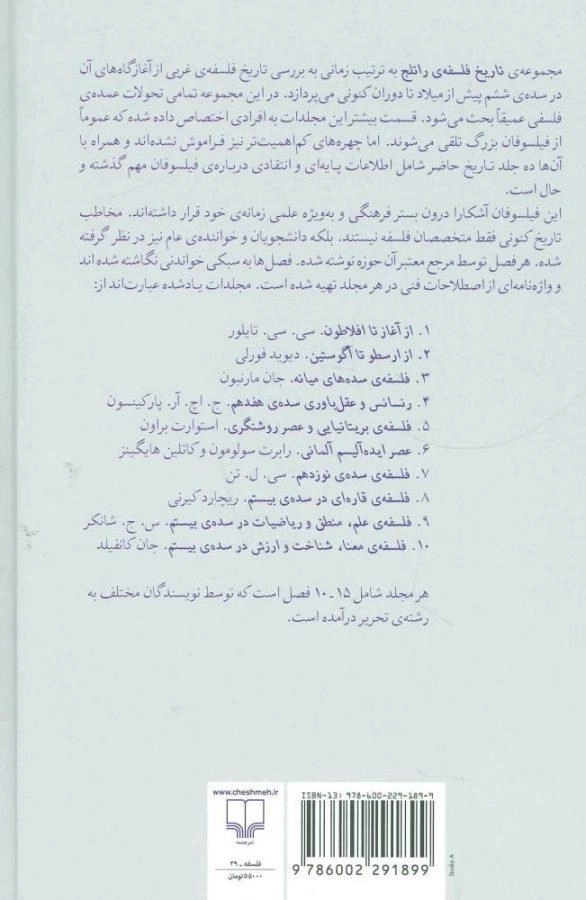 مجموعه‌ی تاریخ فلسفه‌ی راتلج به ترتیب زمانی به بررسی تاریخ فلسفه‌ی غربی از آغازگاه‌های آن
در سده‌ی ششم پیش از میلاد تا دوران کنونی می‌پردازد. در این مجموعه تمامی تحولات عمده‌ی
فلسفی عمیقاً بحث می‌شود. قسمت بیشتر این مجلدات به افرادی اختصاص داده شده که عموماً
از فیلسوفان بزرگ تلقی می‌شوند. اما چهره‌های کم‌اهمیت‌تر نیز فراموش نشده‌اند و همراه با
آن‌ها ده جلد تاریخ حاضر شامل اطلاعات پایه‌ای و انتقادی درباره‌ی فیلسوفان مهم گذشته و
حال است.
این فیلسوفان آشکارا درون بستر فرهنگی و به‌ویژه علمی زمانه‌ی خود قرار داشته‌اند. مخاطب
تاریخ کنونی فقط متخصصان فلسفه نیستند. بلکه دانشجویان و خواننده‌ی عام نیز در نظر گرفته
شده. هر فصل توسط مرجع معتبر آن حوزه نوشته شده. فصل‌ها به سبکی خواندنی نگاشته شده اند
و واژه‌نامه‌ای از اصطلاحات فنی در هر مجلد تهیه شده است. مجلدات یادشده عبارت‌اند از:
۱. از آغاز تا افلاطون. سی. سی. تایلور
۲. از ارسطو تا آگوستین. دیوید فورلی
۳. فلسفه‌ی سده‌های میانه. جان مارنبون
۴. رنسانس و عقل‌باوری سده‌ی هفدهم. ج. اچ. آر. پارکینسون
۵. فلسفه‌ی بریتانیایی و عصر روشنگری. استوارت براون
۶. عصر ایده‌آلیسم آلمانی. رابرت سولومون و کاتلین هایگینز
۷. فلسفه‌ی سده‌ی نوزدهم. سی. ل. تن
۸. فلسفه‌ی قاره‌ای در سده‌ی بیستم. ریچارد کیرنی
۹. فلسفه‌ی علم، منطق و ریاضیات در سده‌ی بیستم. س. ج. شانکر
۱۰. فلسفه‌ی معنا، شناخت و ارزش در سده‌ی بیستم. جان کانفیلد
هر مجلد شامل ۱۵ـ۱۰ فصل است که توسط نویسندگان مختلف به
رشته‌ی تحریر درآمده است.
www.cheshmeh.ir
نشر چشمه
فلسفه ـ ۳۹
۵۵۰۰۰ تومان
ISBN-13: 978-600-229-189-9
9 786002 291899
Studio A